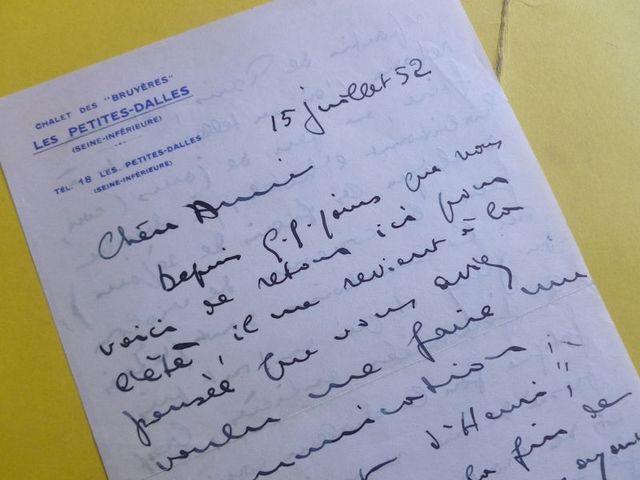 CHALET DES "BRUYÈRES"
LES PETITES-DALLES
(SEINE-INFÉRIEURE)
TÉL. 18 LES PETITES-DALLES
(SEINE-INFÉRIEURE)
15 juillet 52
Chère Annie
Depuis q.q. jours que nous
voici de retour ici pour
l'été, il me revient à la
pensée que vous aviez
voulu me faire une
d'Henri
la fin de